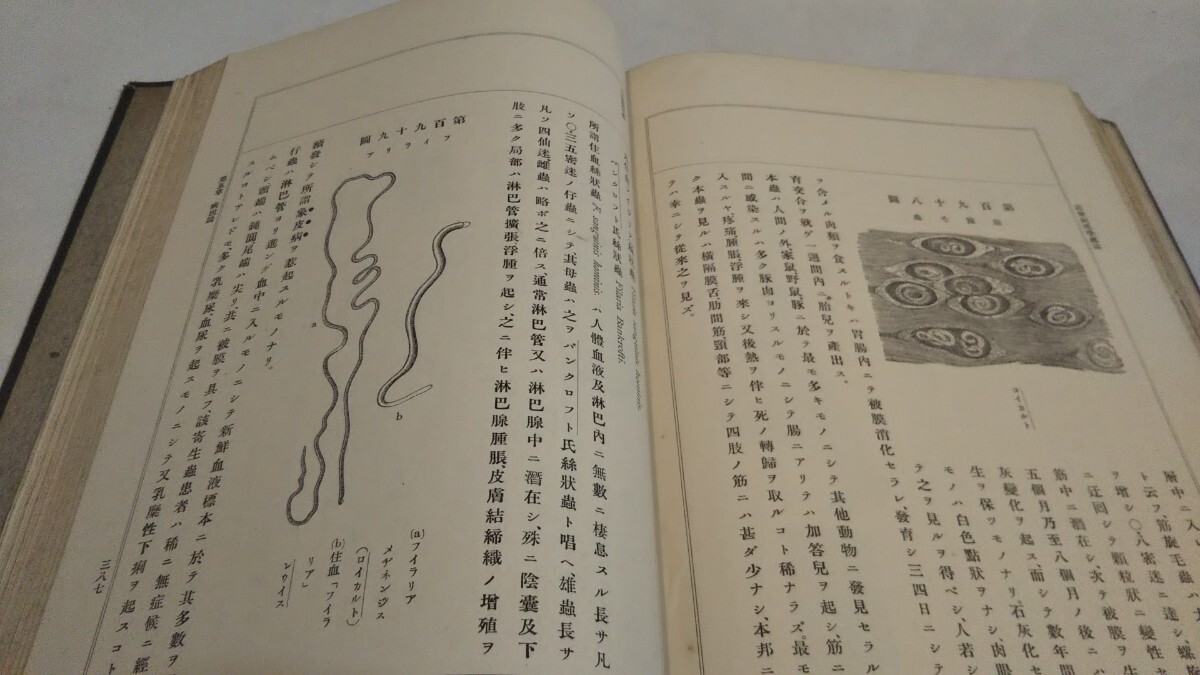 第百九十八圖
旋毛蟲
コイカルト
層中ニ入
ト云フ、筋旋毛蟲ハ
ヲ增シ〇、八密迷ニ達シ、螺旋
ニ迂囘シテ顆粒狀ニ變性
筋中ニ潛在シ、次テ被膜ヲ生
五個月乃至八個月ノ後ニハ
灰變化ヲ起ス、而シテ數年間
生ヲ保ツモノナリ、石灰化セ
モノハ白色點狀ヲナシ、肉眼
テ之ヲ見ルヲ得ベシ、人若シ
ヲ含ノル肉類ヲ食スルトキハ胃腸內ニテ被膜消化セラレ、發育シ三四日ニシテ
育交合ヲ營ゲ一週間內ニ胎兒ヲ產出ス。
本蟲ハ人間ノ外、家鼠野鼠、豚ニ於テ最モ多キモノニシテ其他動物ニ發見セラル
間ニ感染スルハ多ク豚肉ヨリスルモノニシテ腸ニアリテハ加答兒ヲ起シ、筋ニ
入スルヤ、疼痛腫脹、浮腫ヲ來シ又後熱ヲ伴ヒ死ノ轉歸ヲ取ルコト稀ナラズ。最モ
ク本蟲ヲ見ルハ橫隔膜、舌、肋間筋、頸部等ニシテ四肢ノ筋ニハ甚ダ少ナシ、本邦ニ
テハ幸ニシテ從來之ヲ見ズ。
バンクロフト氏絲狀蟲 Filaria Bankrofti.
所謂住血絲狀蟲 F. sanguinis hominis. ハ人體血液及淋巴內ニ無數ニ棲息スル長サ凡
ソ〇、三五密迷ノ仔蟲ニシテ、其母蟲ハ之ヲバンクロフト氏絲狀蟲ト唱ヘ雄蟲長サ
凡ソ四仙迷、雌蟲ハ略ボ之ニ倍ス、通常淋巴管又ハ淋巴腺中ニ潛在シ、殊ニ陰囊及下
肢ニ多ク局部ハ淋巴管擴張浮腫ヲ起シ、之ニ伴ヒ淋巴腺腫脹、皮膚結締織ノ增殖ヲ
第百九十九圖
フィラリア
a
b
(a)フイラリア
メヂネンジス
(ロイカルト)
(b)住血「フイラ
リア」
レウイス
續發シテ所謂象皮病ヲ惹起スルモノナリ。
仔蟲ハ淋巴管ヨリ進ンデ血中ニ入ルモノニシテ新鮮血液標本ニ於テ其多數ヲ
ムベシ、頭端ハ鈍圓尾端ハ尖リ、共ニ被膜ヲ具フ、該寄生蟲患者ハ稀ニ無症候ニ經
スルコトアレドモ、多ク乳糜尿、血尿ヲ起スモノニシテ又乳糜性下痢ヲ起スコト
第五章 病因論
三八七